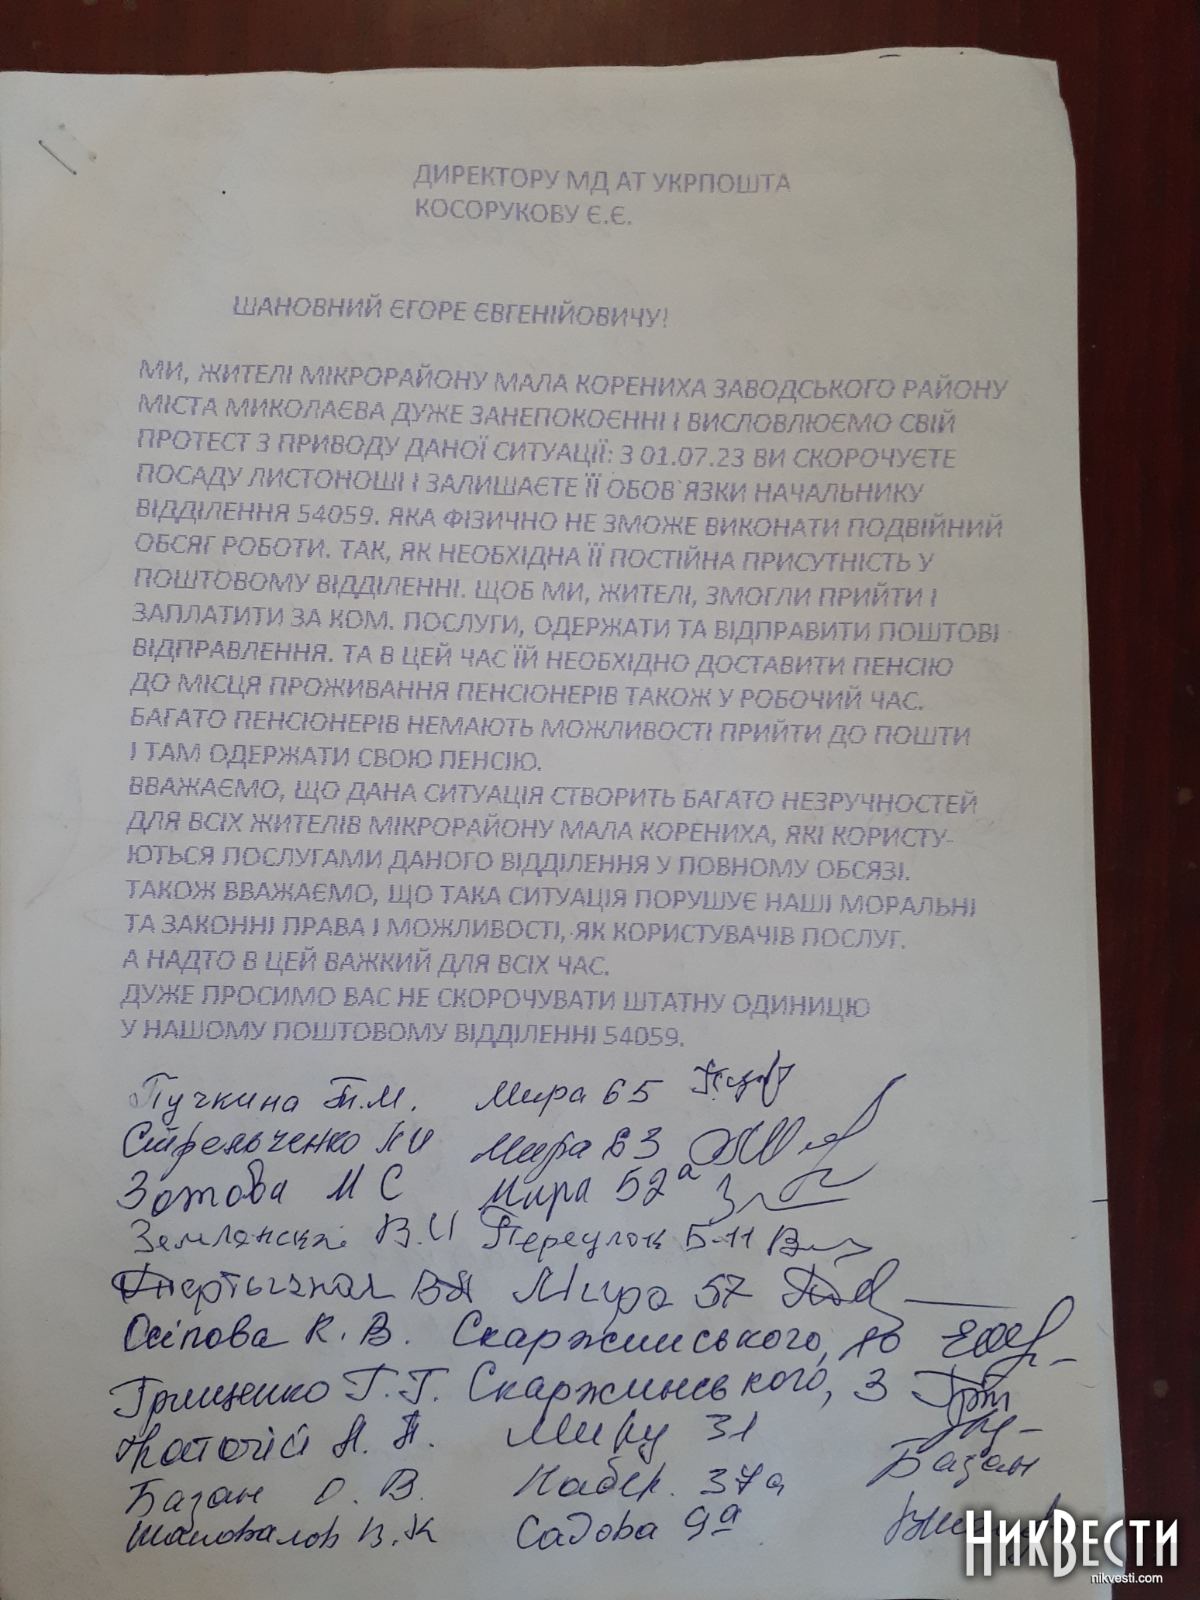 ДИРЕКТОРУ МД АТ УКРПОШТА
КОСОРУКОВУ Є.Є.
ШАНОВНИЙ ЄГОРЕ ЄВГЕНІЙОВИЧУ!
МИ, ЖИТЕЛІ МІКРОРАЙОНУ МАЛА КОРЕНИХА ЗАВОДСЬКОГО РАЙОНУ
МІСТА МИКОЛАЄВА ДУЖЕ ЗАНЕПОКОЄННІ І ВИСЛОВЛЮЄМО СВІЙ
ПРОТЕСТ З ПРИВОДУ ДАНОЇ СИТУАЦІЇ: З 01.07.23 ВИ СКОРОЧУЄТЕ
ПОСАДУ ЛИСТОНОШІ І ЗАЛИШАЄТЕ ЇЇ ОБОВ`ЯЗКИ НАЧАЛЬНИКУ
ВІДДІЛЕННЯ 54059. ЯКА ФІЗИЧНО НЕ ЗМОЖЕ ВИКОНАТИ ПОДВІЙНИЙ
ОБСЯГ РОБОТИ. ТАК, ЯК НЕОБХІДНА ЇЇ ПОСТІЙНА ПРИСУТНІСТЬ У
ПОШТОВОМУ ВІДДІЛЕННІ. ЩОБ МИ, ЖИТЕЛІ, ЗМОГЛИ ПРИЙТИ І
ЗАПЛАТИТИ ЗА КОМ. ПОСЛУГИ, ОДЕРЖАТИ ТА ВІДПРАВИТИ ПОШТОВІ
ВІДПРАВЛЕННЯ. ТА В ЦЕЙ ЧАС ЇЙ НЕОБХІДНО ДОСТАВИТИ ПЕНСІЮ
ДО МІСЦЯ ПРОЖИВАННЯ ПЕНСІОНЕРІВ ТАКОЖ У РОБОЧИЙ ЧАС.
БАГАТО ПЕНСІОНЕРІВ НЕМАЮТЬ МОЖЛИВОСТІ ПРИЙТИ ДО ПОШТИ
І ТАМ ОДЕРЖАТИ СВОЮ ПЕНСІЮ.
ВВАЖАЄМО, ЩО ДАНА СИТУАЦІЯ СТВОРИТЬ БАГАТО НЕЗРУЧНОСТЕЙ
ДЛЯ ВСІХ ЖИТЕЛІВ МІКРОРАЙОНУ МАЛА КОРЕНИХА, ЯКІ КОРИСТУ-
ЮТЬСЯ ПОСЛУГАМИ ДАНОГО ВІДДІЛЕННЯ У ПОВНОМУ ОБСЯЗІ.
ТАКОЖ ВВАЖАЄМО, ЩО ТАКА СИТУАЦІЯ ПОРУШУЄ НАШІ МОРАЛЬНІ
ТА ЗАКОННІ ПРАВА І МОЖЛИВОСТІ, ЯК КОРИСТУВАЧІВ ПОСЛУГ.
А НАДТО В ЦЕЙ ВАЖКИЙ ДЛЯ ВСІХ ЧАС.
ДУЖЕ ПРОСИМО ВАС НЕ СКОРОЧУВАТИ ШТАТНУ ОДИНИЦЮ
У НАШОМУ ПОШТОВОМУ ВІДДІЛЕННІ 54059.
Пучкина Т.М. Мира 65
Стрельченко Мира 63
Зотова М С Мира 52а
В.И Переулок 5-11
Мира 57
Осіпова К. В. Скаржинського,
Грищенко Г.Г. Скаржинського, 3
Миру 31
Базан О. В. Набер. 37а Базан
Шаповалов В.К Садова 9а
НикВести
nikvesti.com